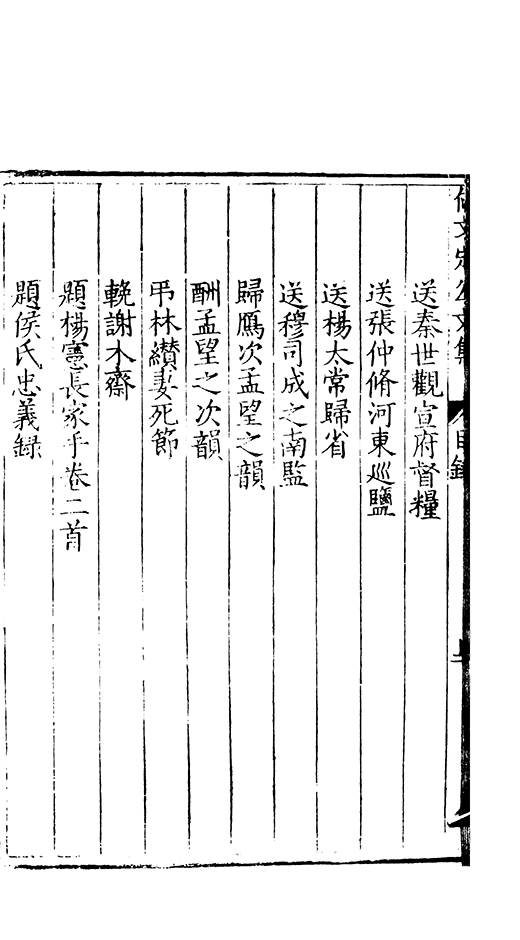 文定公文集 目録
送秦世觀宣府督糧
送張仲脩河東巡鹽
送楊太常歸省
送穆司成之南監
歸鴈次孟望之韻
酬孟望之次韻
弔林纘妻死節
輓謝木齋
題楊憲長家手卷二首
題侯氏忠義録